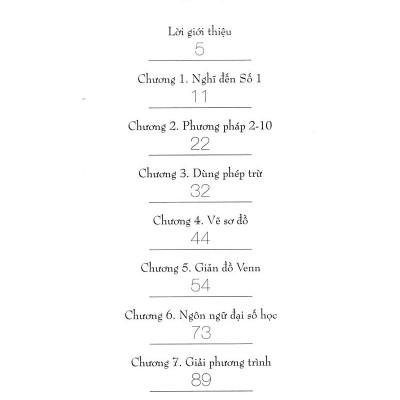 Lời giới thiệu
5
Chương 1. Nghĩ đến Số 1
11
Chương 2. Phương pháp 2-10
22
Chương 3. Dùng phép trừ
32
Chương 4. Vẽ sơ đồ
44
Chương 5. Giản đồ Venn
54
Chương 6. Ngôn ngữ đại số học
73
Chương 7. Giải phương trình
89